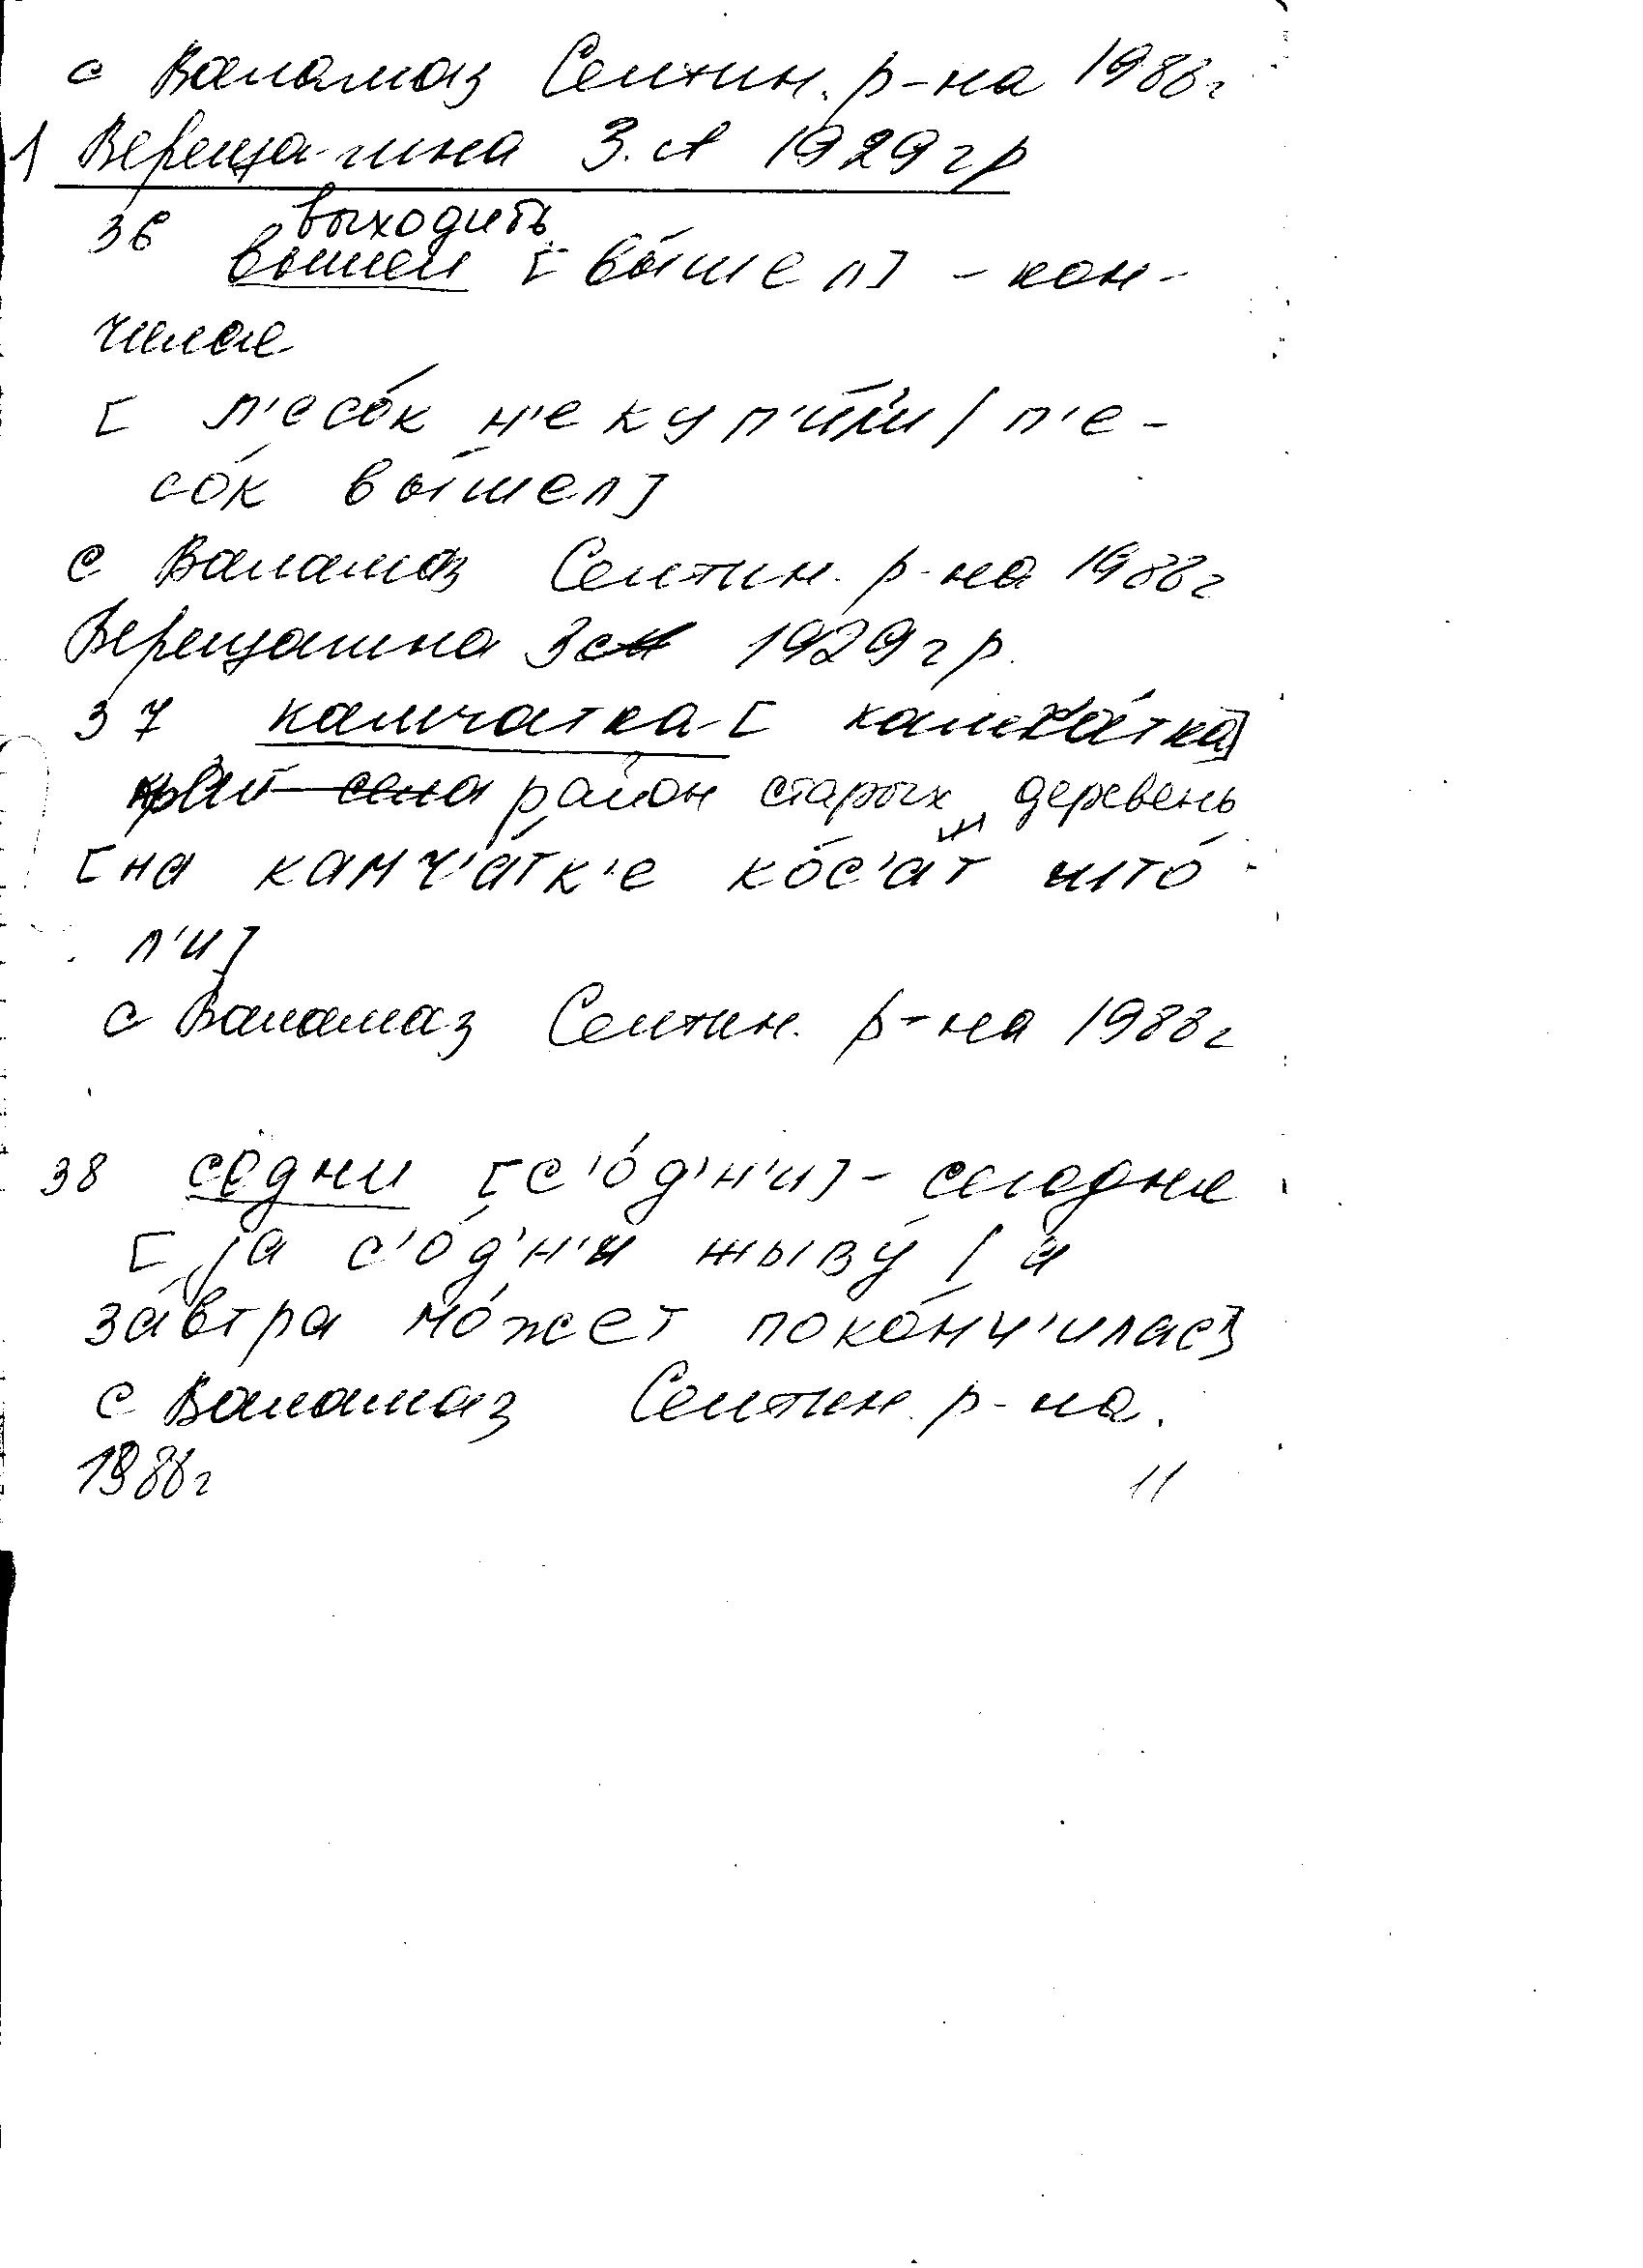 с Валамаз Селтин. р-на 1988г
1 Верещагина З.А 1929 г р
36 выходить
вышел [вы́шел] - кон-
чился
[п'есо́к н'е куп'и́л'и / п'е-
со́к вы́шел]
с Валамаз Селтин. р-на 1988г
Верещагина ЗА 1929 г р.
37 камчатка - [камча́тка]
край села район старых деревень
[на камч'а́тк'е ко́с'ат што́
л'и]
с Валамаз Селтин. р-на 1988г
38 сёдни [с'о́д'н'и] - сегодня
[ја с'о́д'н'и жыву́ / а
за́втра мо́жет поко́нч'илас']
с Валамаз Селтин. р-на.
1988г
11